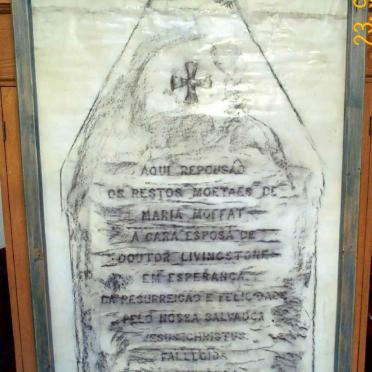 AQUI REPOUSAO
OS RESTOS MORTAES DE
MARIA MOFFAT
A CARA ESPOSA DE
DOUTOR LIVINGSTONE
EM ESPERANCA
DA RESURREICAO E FELICIDADE
PELO NOSSA SALVADOR
JESUS CHRISTUS
FALLECIDA
23